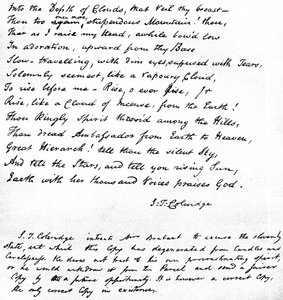 Into the Depth of Clouds, that Veil thy breast—
Thou too again, stupendous Mountain! thou,
once more
That as I raise my Head, awhile bow'd low
In adoration, upward from thy Base
Slow-travelling, with dim eyes suffused with Tears,
Solemnly seemest, like a vapoury Cloud,
To rise before me— Rise, o ever rise,
Rise, like a Cloud of Incense, from the Earth!
Thou kingly Spirit thron'd among the Hills,
Thou dread Ambassador from Earth to Heaven,
Great Hierarch! tell thou the silent Sky,
And tell the Stars, and tell yon rising Sun,
Earth with her thousand Voices praises God.
S. T. Coleridge
S. T. Coleridge intreats Mrs Brabant to excuse the slovenly
state, into which this Copy has degenerated from Candles and
Carelessness. He does not trust to his own procrastinating spirit,
or he would withdraw it from the Parcel and send a fairer
Copy by a future opportunity. It is however a correct Copy,
the only correct Copy in existence.